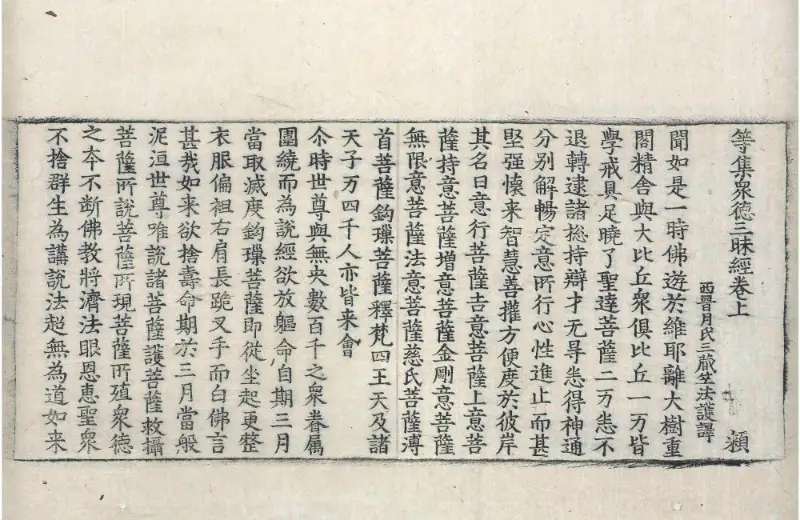 等集衆德三昧經卷上 穎
西晉月氏三藏竺法護譯
聞如是一時佛遊於維耶離大樹重
閣精舍與大比丘衆俱比丘一万皆
學戒具足曉了聖達菩薩二万悉不
退轉逮諸捴持辯才无㝵悉得神通
分别解暢定意所行心性進止而甚
堅强懷来智慧善權方便度於彼岸
其名曰意行菩薩吉意菩薩上意菩
薩持意菩薩增意菩薩金剛意菩薩
無限意菩薩法意菩薩慈氏菩薩溥
首菩薩鈎璅菩薩釋梵四王天及諸
天子万四千人亦皆来會
尒時世尊與無央數百千之衆眷屬
圍繞而為說經欲放軀命自期三月
當取滅度鈎璅菩薩即從坐起更整
衣服偏袒右肩長跪叉手而白佛言
甚哉如来欲捨壽命期於三月當般
泥洹世尊唯說諸菩薩護菩薩救攝
菩薩所說菩薩所現菩薩所殖衆德
之夲不断佛教將濟法眼恩惠聖衆
不捨群生為講說法超無為道如来